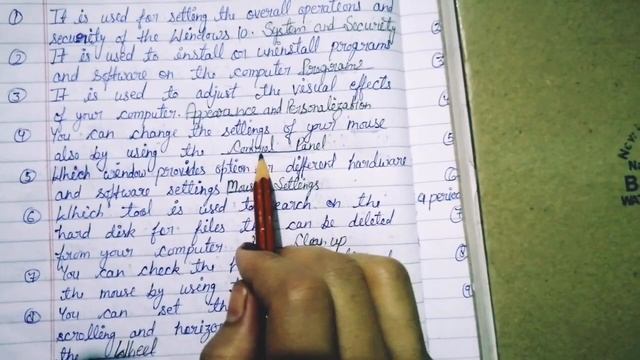 ① It is used for setting the overall operations and
security of the Windows 10. System and Security
② It is used to install or uninstall programs
and software on the computer Programs
③ It is used to adjust the visual effects
of your computer. Appearance and Personalization
④ You can change the settings of your mouse
also by using the Control Panel
⑤ Which window provides option for different hardware
and software settings Mouse Settings
⑥ Which tool is used to search on the
hard disk for files that can be deleted
from your computer Clean up
⑦ You can check the
the mouse by using
⑧ You can set the
scrolling and
the Wheel
a period